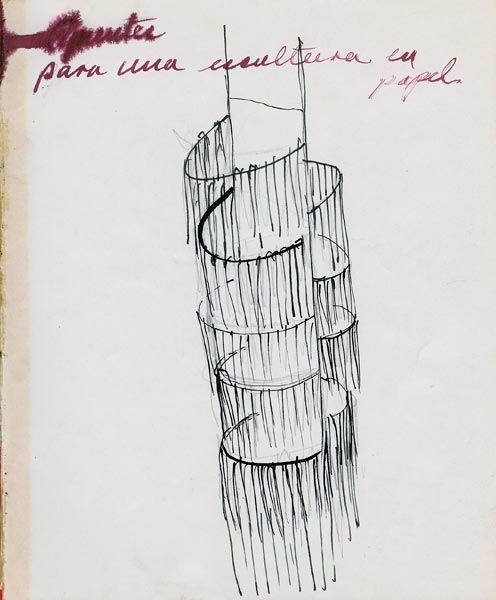 Apuntes
para una escultura en
papel.